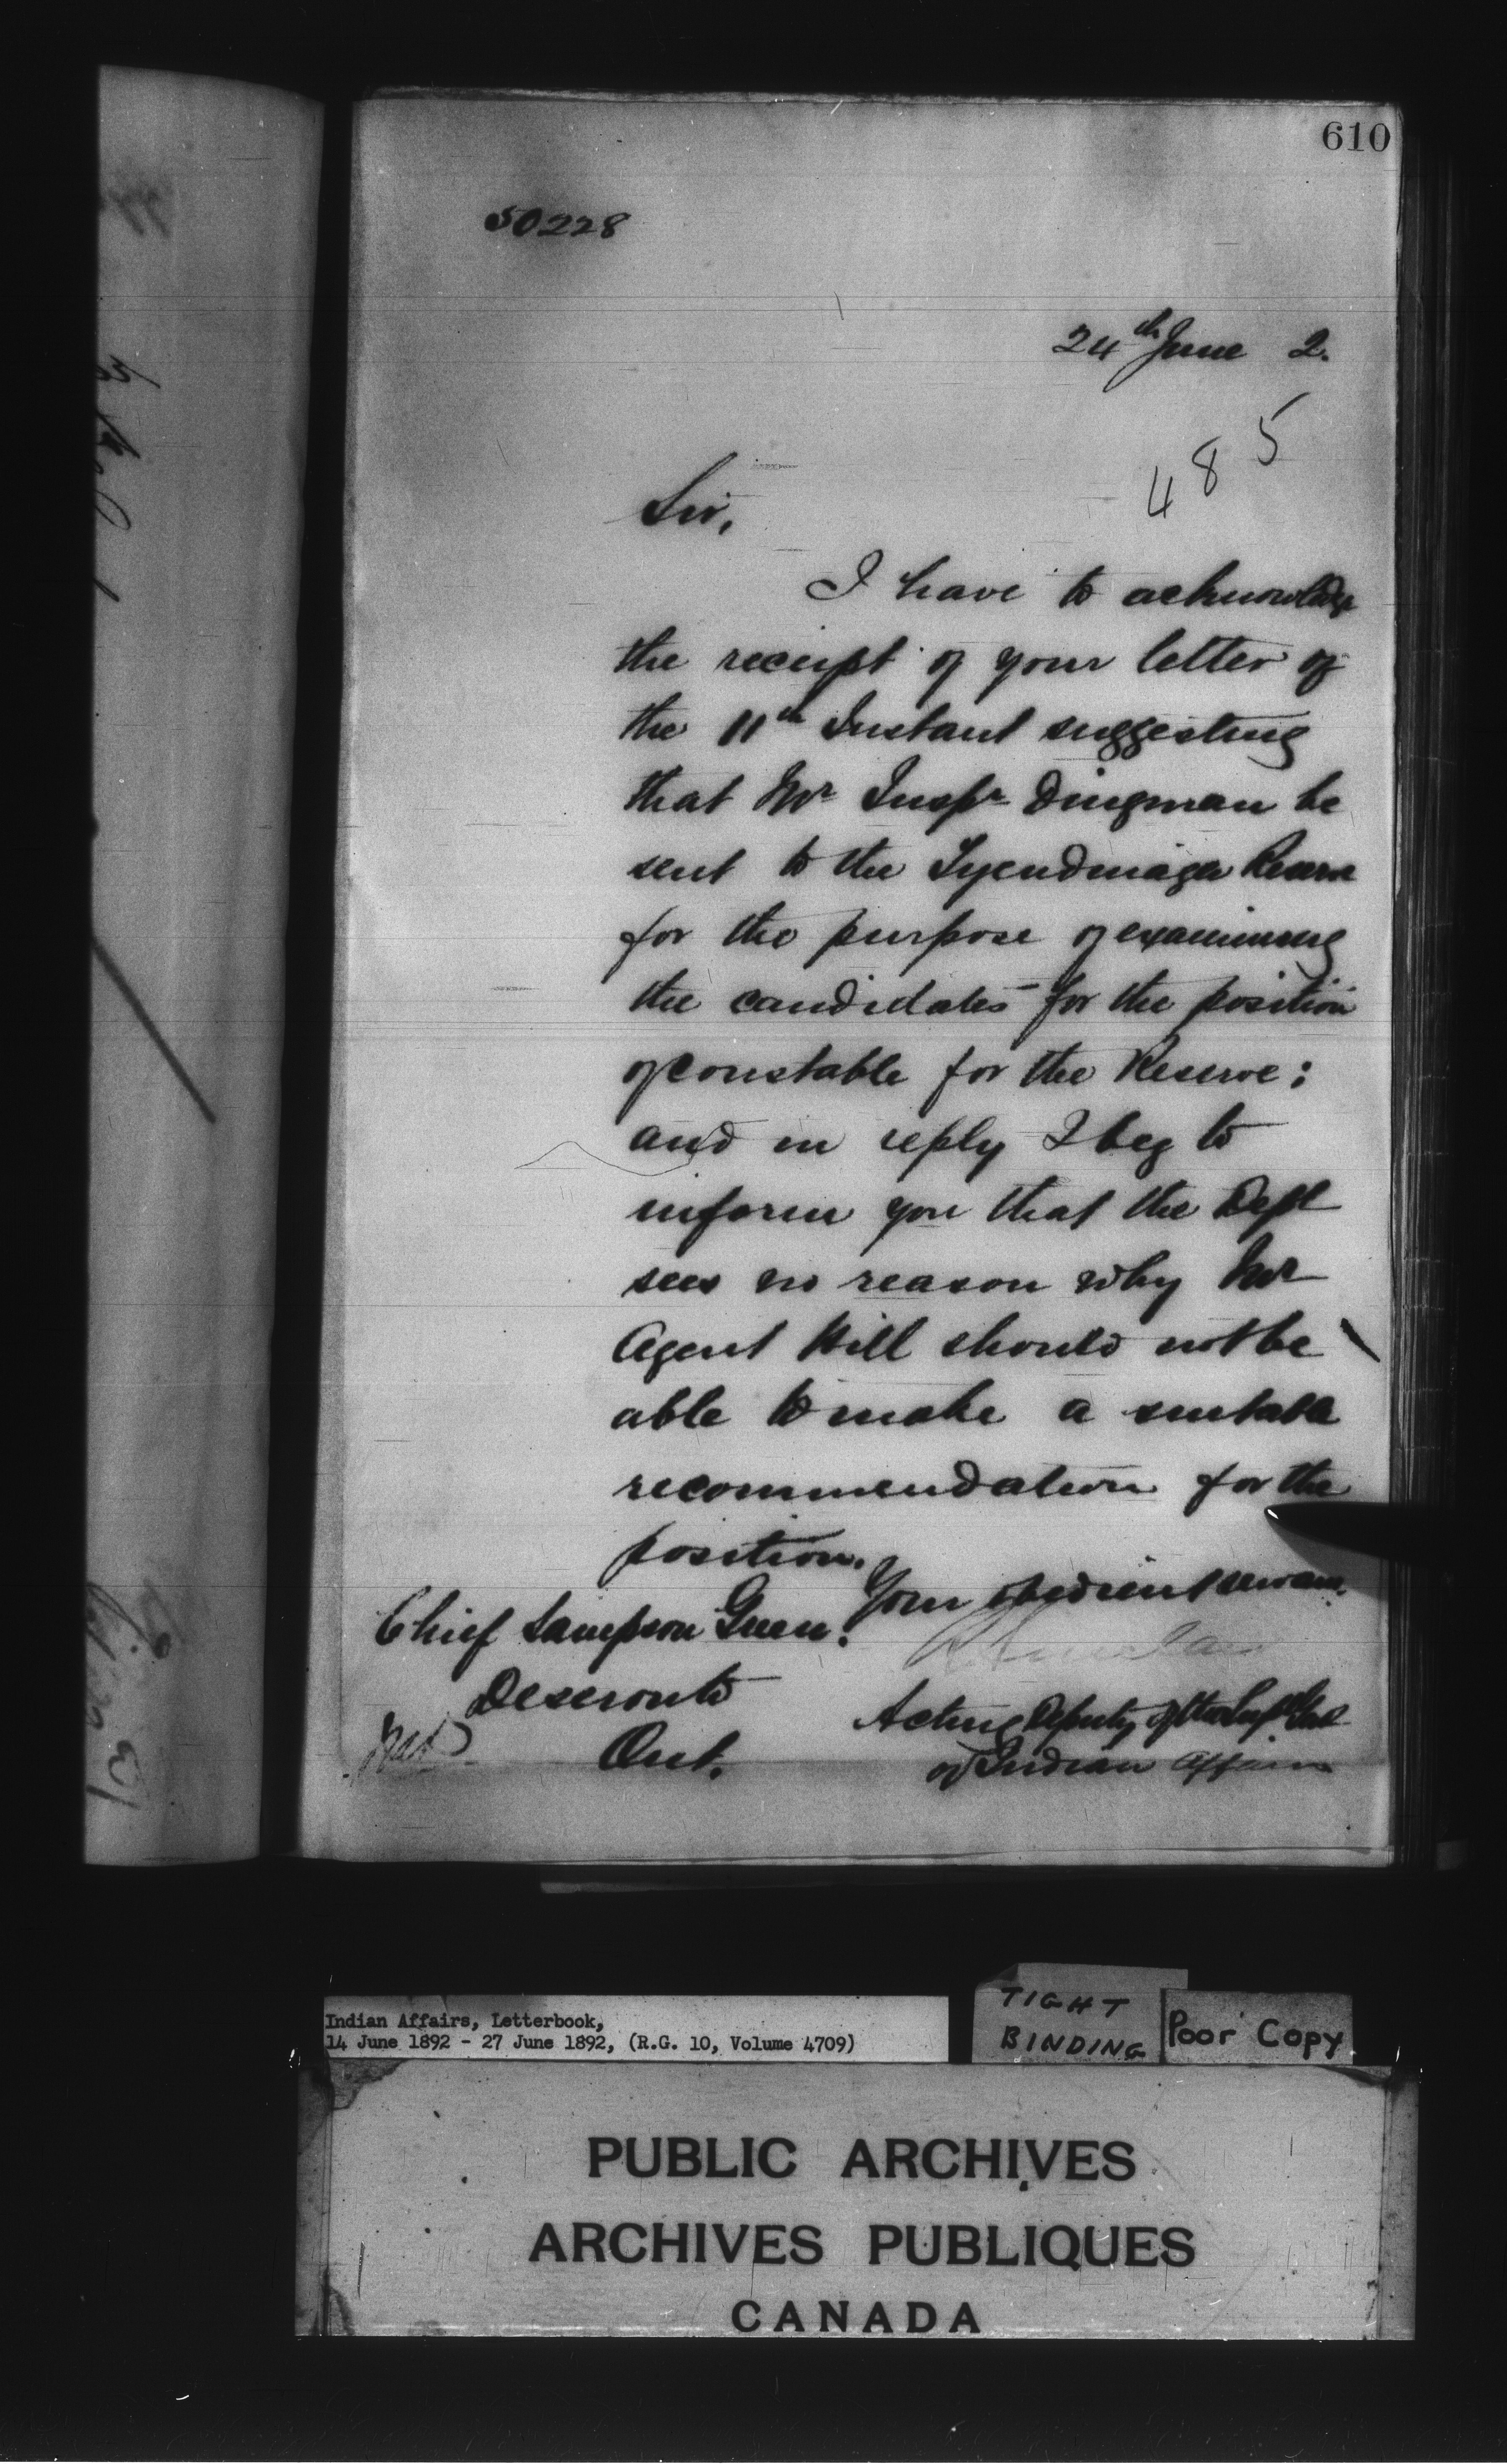 610
50228
24th June 2.
485
Sir,
I have to acknowledge
the receipt of your letter of
the 11th Instant suggesting
that Mr Inspr Dingman be
sent to the Tyendinaga Reserve
for the purpose of examining
the candidates for the position
of Constable for the Reserve;
and in reply I beg to
inform you that the Dept
sees no reason why Mr
Agent Hill should not be
able to make a suitable
recommendation for the
position.
Your obedient servant.
Chief Sampson Green.
Deseronto
Ont.
Acting Deputy of the Supt Genl
of Indian Affairs
Indian Affairs, Letterbook,
14 June 1892 - 27 June 1892, (R.G. 10, Volume 4709)
TIGHT
BINDING
Poor Copy
PUBLIC ARCHIVES
ARCHIVES PUBLIQUES
CANADA